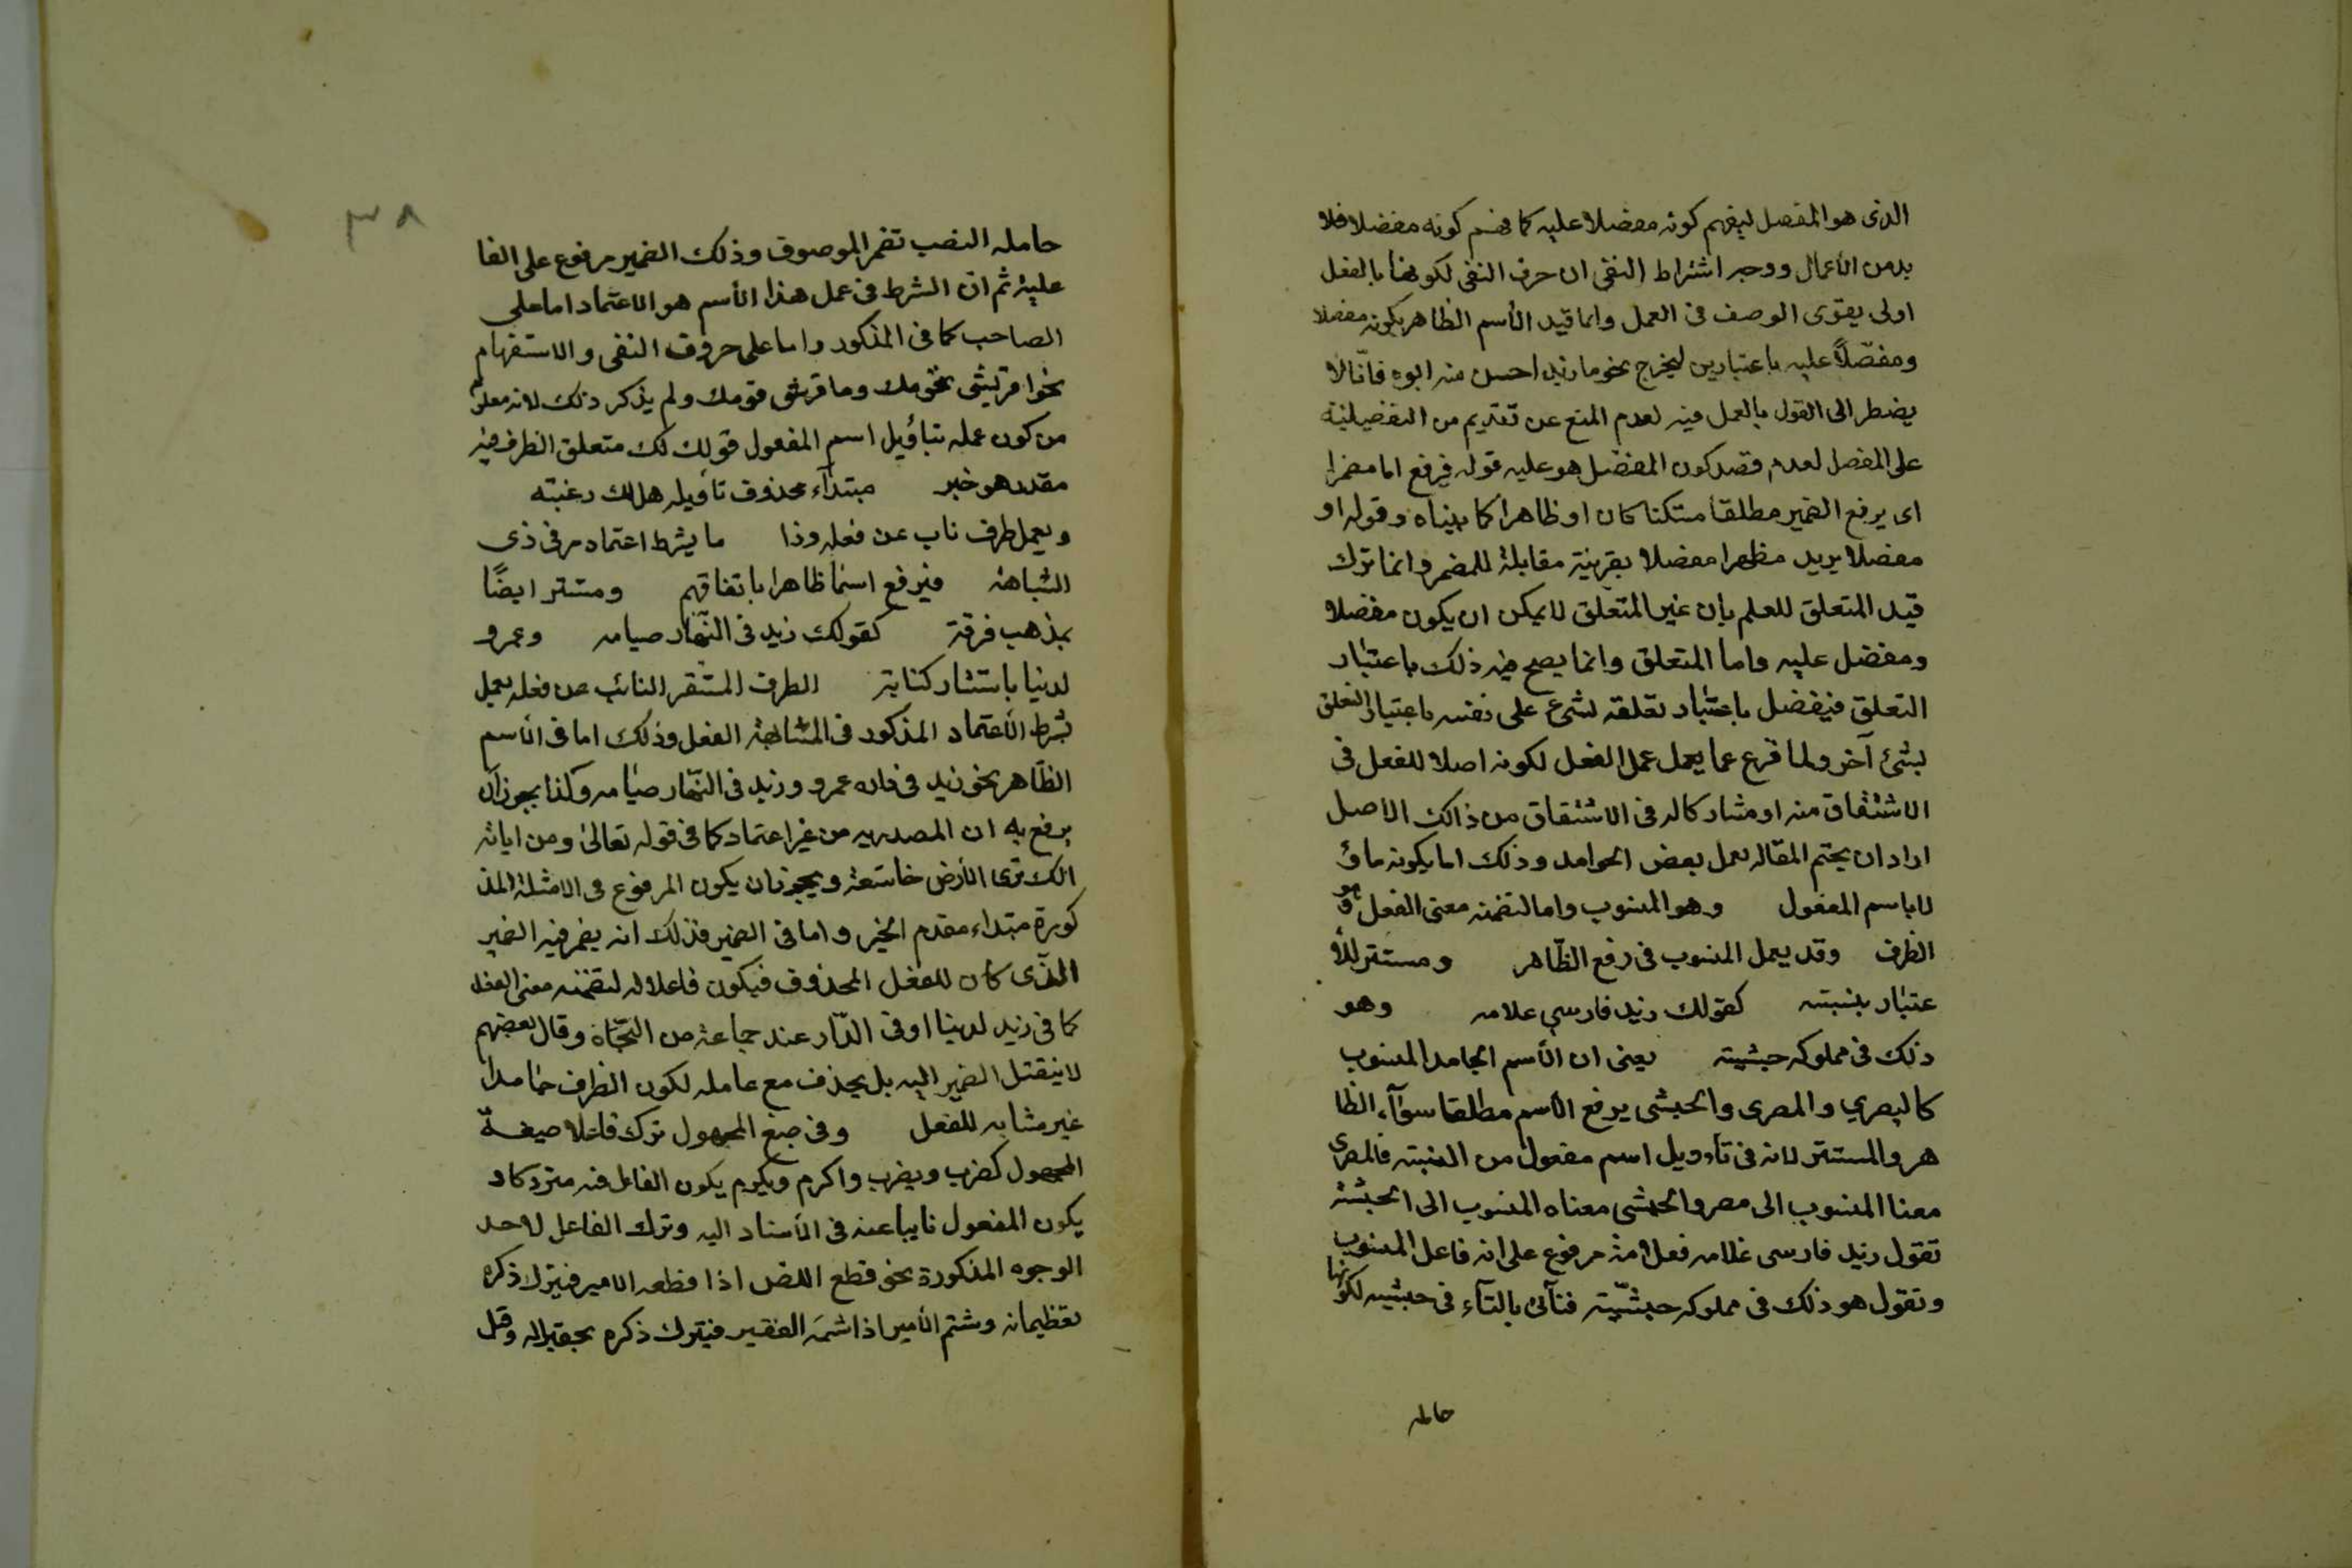 الذى هو المفضل ليفهم كونه مفضلا عليه كما فهم كونه مفضلا فلا
بد من الأعمال ووجه اشتراط النفى ان حرف النفى لكونها بالفعل
اولى يقوى الوصف فى العمل وانما قيد الأسم الظاهر بكونه مفضلا
ومفضّلًا عليه باعتبارين ليخرج نحو ما زيد احسن منه ابوه فانّا لا
يضطر الى القول بالعمل فيه لعدم المنع عن تقديم من التفضيلية
على المفضل لعدم قصد كون المفضل هو عليه قوله فيرفع اما مضمرا
اى يرفع الضمير مطلقا مستكنا كان او ظاهرا كما بيناه وقوله او
مفضلا يريد مظهرا مفضلا بقرينة مقابلة للمضمر وانما ترك
قيد المتعلق للعلم بان غير المتعلق لا يمكن ان يكون مفضلا
ومفضل عليه واما المتعلق وانما يصح فيه ذلك باعتبار
التعلق فيفضل باعتبار تعلقه لشئ على نفسه باعتبار التعلق
بشئ آخر ولما فرغ عما يعمل عمل الفعل لكونه اصلا للفعل فى
الاشتقاق منه او مشاركا له فى الاشتقاق من ذالك الاصل
اراد ان يختم المقاله بعمل بعض الجوامد وذلك اما بكونه ماؤ
لا باسم المفعول وهو المنسوب واما لتضمنه معنى الفعل وهو
الظرف وقد يعمل المنسوب فى رفع الظّاهر ومستتر للأ
عتبار بنسبته كقولك زيد فارسي غلامه وهو
ذلك فى مملوكه حبشيته يعنى ان الأسم الجامد المنسوب
كالبصري والمصرى والحبشى يرفع الأسم مطلقا سوآء الظا
هر والمستتر لانه فى تأويل اسم مفعول من النسبته فالمصرى
معنا المنسوب الى مصر والحبشى معناه المنسوب الى الحبشة
تقول زيد فارسى غلامه فعلامه مرفوع على انه فاعل المنسوب
وتقول هو ذلك فى مملوكه حبشيّته فتأتى بالتآء فى حبشيه لكونها
حامله
٣٨
حامله النصب تضمر الموصوف وذلك الضمير مرفوع على الفا
علية ثم ان الشرط فى عمل هذا الأسم هو الاعتماد اما على
الصاحب كما فى المذكور واما على حروف النفى والاستفهام
نحو اقريشى قومك وما قرشى قومك ولم يذكر ذلك لانه معلوم
من كون عمله بتاؤيل اسم المفعول قولك لك متعلق الظرف فيه
مقدر هو خبر مبتدآء محذوف تاويله هل لك رغبته
ويعمل ظرف ناب عن فعله وذا ما يشرط اعتماد مر فى ذى
الشباهة فيرفع اسما ظاهرا باتفاقهم ومستتر ايضًا
بمذهب فرقة كقولك زيد فى النّهار صيامه وعمرو
لدينا باستتار كناية الظرف المستقر النائب عن فعله يعمل
بشرط الأعتماد المذكور فى المشابهة الفعل وذلك اما فى الأسم
الظّاهر نحو زيد فى داره عمرو وزيد فى النّهار صيامه وكذا يجوز ان
يرفع به ان المصدريه من غير اعتماد كما فى قوله تعالى ومن اياته
انك ترى الأرض خاشعة ويجوز ان يكون المرفوع فى الامثلة المذ
كورة مبتداء مقدم الخبر واما فى الضمير فذلك انه يضمر فيه الضمير
الذّى كان للفعل المحذوف فيكون فاعلا له لتضمنه معنى الفعل
كما فى زيد لدينا او فى الدّار عند جماعة من النّحاة وقال بعضهم
لا ينقتل الضمير اليه بل يحذف مع عامله لكون الظرف جامدا
غير مشابه للفعل وفى صيغ المجهول ترك فاعلا صيغة
المجهول كضرب ويضرب واكرم ويكرم يكون الفاعل فيه متروكا و
يكون المفعول نايبا عنه فى الأسناد اليه وترك الفاعل لاحد
الوجوه المذكورة نحو قطع اللص اذا قطعه الامير فيترك ذكره
تعظيما له وشتم الأمير اذا شتمَه الفقير فيترك ذكره تحقيرا له وقتل